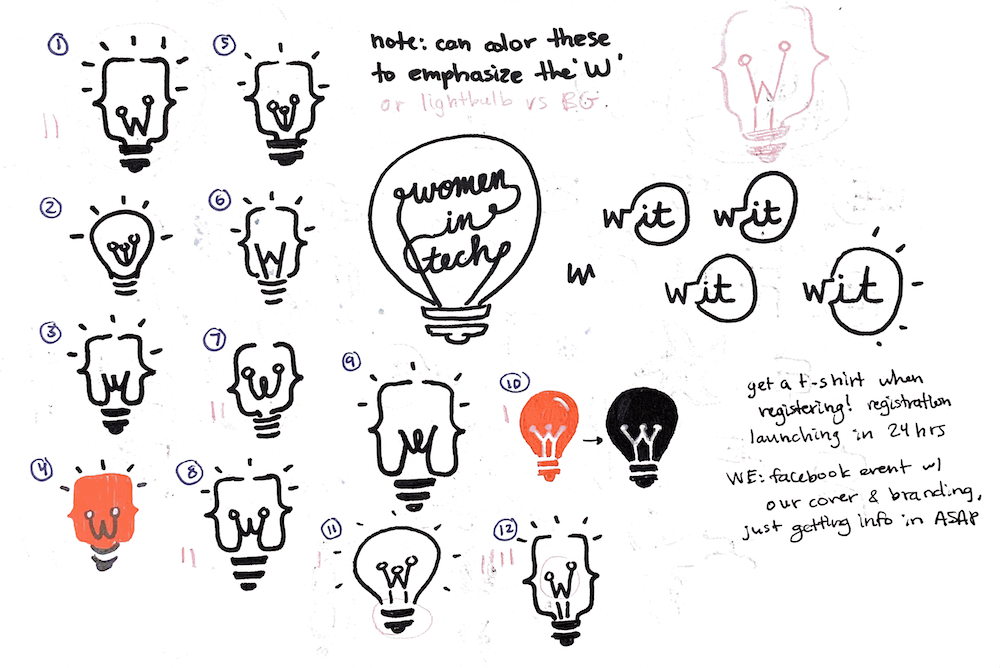 note: can color these
to emphasize the 'W'
or lightbulb vs BG.
1
5
2
6
3
7
4
8
9
10
11
12
W
W
W
W
W
W
W
W
W
W
W
W
W
W
women
in
tech
w
wit
wit
wit
wit
get a t-shirt when
registering! registration
launching in 24 hrs
WE: facebook event w/
our cover & branding,
just getting info in ASAP